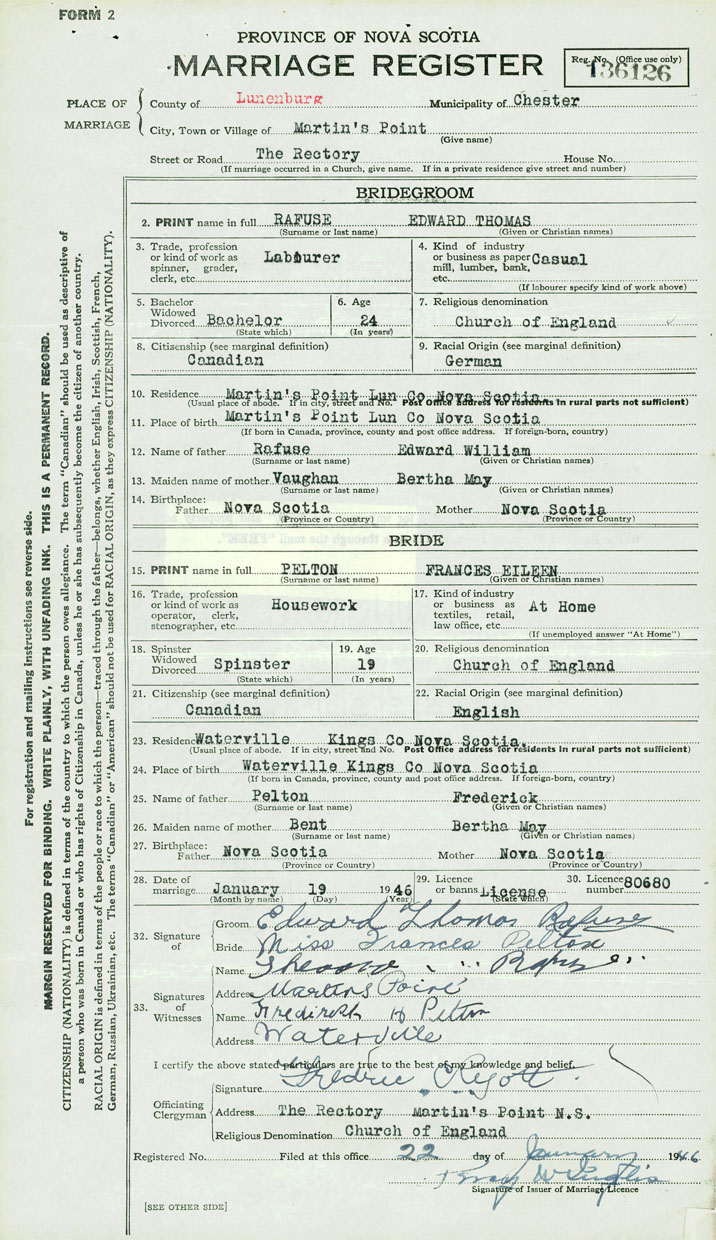 FORM 2
PROVINCE OF NOVA SCOTIA
MARRIAGE REGISTER
Reg. No. (Office use only)
136126
PLACE OF MARRIAGE
County of Lunenburg Municipality of Chester
City, Town or Village of Martin's Point
(Give name)
Street or Road The Rectory House No.
(If marriage occurred in a Church, give name. If in a private residence give street and number)
BRIDEGROOM
2. PRINT name in full RAFUSE EDWARD THOMAS
(Surname or last name) (Given or Christian names)
3. Trade, profession or kind of work as spinner, grader, clerk, etc. Labourer
4. Kind of industry or business as paper mill, lumber, bank, etc. Casual
(If labourer specify kind of work above)
5. Bachelor Widowed Divorced Bachelor
(State which)
6. Age 24
(In years)
7. Religious denomination
Church of England
8. Citizenship (see marginal definition)
Canadian
9. Racial Origin (see marginal definition)
German
10. Residence Martin's Point Lun Co Nova Scotia.
(Usual place of abode. If in city, street and No. Post Office address for residents in rural parts not sufficient)
11. Place of birth Martin's Point Lun Co Nova Scotia
(If born in Canada, province, county and post office address. If foreign-born, country)
12. Name of father Rafuse Edward William
(Surname or last name) (Given or Christian names)
13. Maiden name of mother Vaughan Bertha May
(Surname or last name) (Given or Christian names)
14. Birthplace:
Father Nova Scotia Mother Nova Scotia
(Province or Country) (Province or Country)
BRIDE
15. PRINT name in full PELTON FRANCES EILEEN
(Surname or last name) (Given or Christian names)
16. Trade, profession or kind of work as operator, clerk, stenographer, etc. Housework
17. Kind of industry or business as textiles, retail, law office, etc. At Home
(If unemployed answer "At Home")
18. Spinster Widowed Divorced Spinster
(State which)
19. Age 19
(In years)
20. Religious denomination
Church of England
21. Citizenship (see marginal definition)
Canadian
22. Racial Origin (see marginal definition)
English
23. Residence Waterville Kings Co Nova Scotia.
(Usual place of abode. If in city, street and No. Post Office address for residents in rural parts not sufficient)
24. Place of birth Waterville Kings Co Nova Scotia
(If born in Canada, province, county and post office address. If foreign-born, country)
25. Name of father Pelton Frederick
(Surname or last name) (Given or Christian names)
26. Maiden name of mother Bent Bertha May
(Surname or last name) (Given or Christian names)
27. Birthplace:
Father Nova Scotia Mother Nova Scotia
(Province or Country) (Province or Country)
28. Date of marriage January 19 1946
(Month by name) (Day) (Year)
29. Licence or banns License
(State which)
30. Licence number 80680
32. Signature of
Groom Edward Thomas Rafuse
Bride Miss Frances Pelton
33. Signatures of Witnesses
Name
Address Martins Point
Name H Pelton
Address Waterville
I certify the above stated particulars are true to the best of my knowledge and belief.
Officiating Clergyman
Signature
Address The Rectory Martin's Point N.S.
Religious Denomination Church of England
Registered No. Filed at this office 22 day of January 1946
Signature of Issuer of Marriage Licence
[SEE OTHER SIDE]
For registration and mailing instructions see reverse side.
MARGIN RESERVED FOR BINDING. WRITE PLAINLY, WITH UNFADING INK. THIS IS A PERMANENT RECORD.
CITIZENSHIP (NATIONALITY) is defined in terms of the country to which the person owes allegiance. The term "Canadian" should be used as descriptive of
a person who was born in Canada or who has rights of Citizenship in Canada, unless he or she has subsequently become the citizen of another country.
RACIAL ORIGIN is defined in terms of the people or race to which the person—traced through the father—belongs, whether English, Irish, Scottish, French,
German, Russian, Ukrainian, etc. The terms "Canadian" or "American" should not be used for RACIAL ORIGIN, as they express CITIZENSHIP (NATIONALITY).